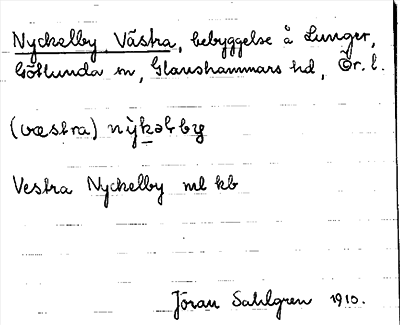 Nyckelby Västra, bebyggelse å Lunger,
Götlunda sn, Glanshammars hd, Ör. l.
(væstra) ny̆kəl-by
Vestra Nyckelby ml kb
Jöran Sahlgren 1910.